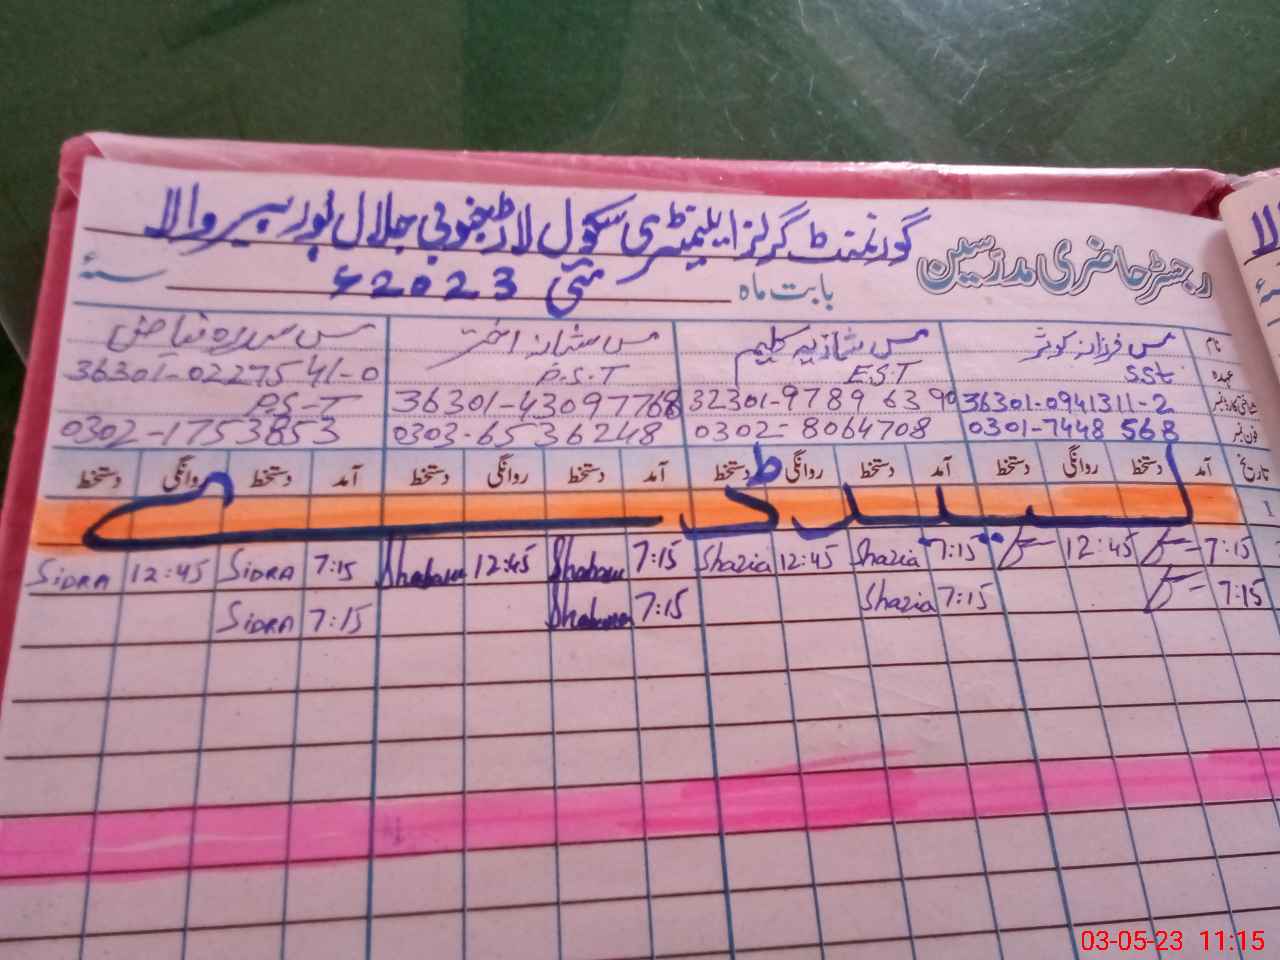 گورنمنٹ گرلز ایلیمنٹری سکول لاڑ جنوبی جلال پور پیروالا
رجسٹر حاضری مدرسین
بابت ماہ مئی 2023ء سنہ
نام مس فرزانہ کوثر مس شازیہ کلیم مس شبانہ اختر مس سدرہ فیاض
عہدہ SSt E.S.T P.S.T 36301-0227541-0
شناختی کارڈ نمبر 36301-0941311-2 32301-9789 63 90 36301-43097768 P.S-T
فون نمبر 0301-7448 568 0302-8064708 0303-6536248 0302-1753853
تاریخ آمد دستخط روانگی دستخط آمد دستخط روانگی دستخط آمد دستخط روانگی دستخط آمد دستخط روانگی دستخط
1
7:15 12:45 7:15 Shazia 12:45 Shazia 7:15 12:45 7:15 SIDRA 12:45 SIDRA
7:15 7:15 Shazia 7:15 7:15 SIDRA
03-05-23 11:15